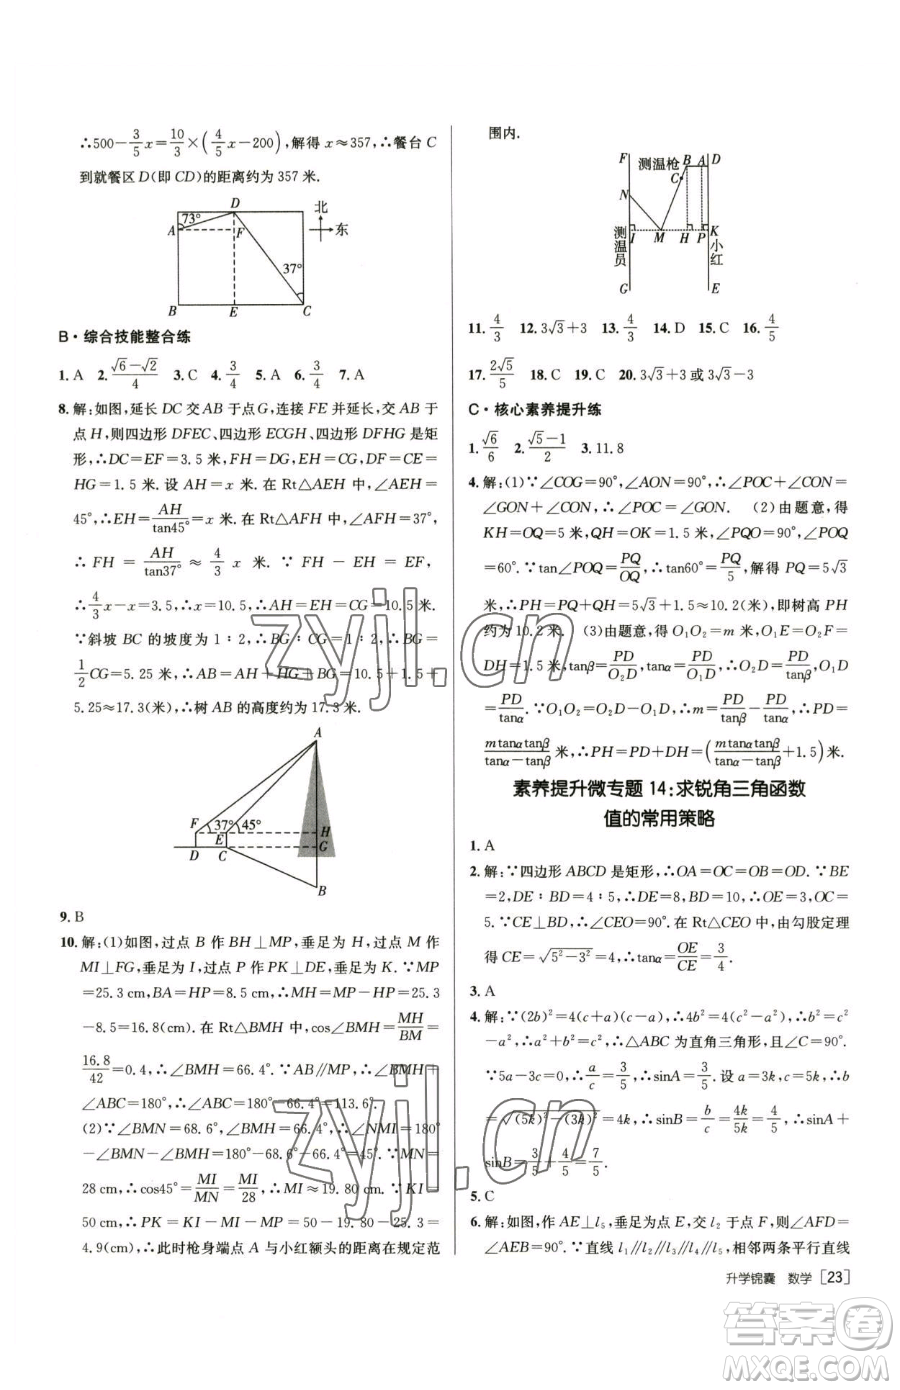 ∴500－3/5x＝10/3×(4/5x－200)，解得 x≈357，∴餐台 C
到就餐区 D(即 CD)的距离约为 357 米.
D
北
73°
A
F
东
37°
B
E
C
B·综合技能整合练
1. A　2. (√6－√2)/4　3. C　4. 3/4　5. A　6. 3/4　7. A
8. 解:如图,延长 DC 交 AB 于点 G,连接 FE 并延长,交 AB 于
点 H,则四边形 DFEC、四边形 ECGH、四边形 DFHG 是矩
形,∴DC＝EF＝3.5 米,FH＝DG,∠FHA＝90°,DF＝CE＝
HG＝1.5 米. 设 AH＝x 米. 在 Rt△AEH 中,∠AEH＝
45°,∴EH＝AH/tan45°＝x 米. 在 Rt△AHF 中,∠AFH＝37°,
∴ FH ＝ AH/tan37° ≈ 4/3 x 米. ∵ FH － EH ＝ EF,
∴4/3x－x＝3.5,∴x＝10.5,∴AH＝EH＝CG＝10.5 米.
∵斜坡 BC 的坡度为 1∶2,∴BG∶CG＝1∶2,∴BG＝
1/2CG＝5.25 米,∴AB＝AH＋HG＋BG＝10.5＋1.5＋
5.25≈17.3(米),∴树 AB 的高度约为 17.3 米.
A
F
37°
E
45°
H
D
C
G
B
9. B
10. 解:(1)如图,过点 B 作 BH⊥MP,垂足为 H,过点 M 作
MI⊥FG,垂足为 I,过点 P 作 PK⊥DE,垂足为 K. ∵MP
＝25.3 cm,BA＝HP＝8.5 cm,∴MH＝MP－HP＝25.3
－8.5＝16.8(cm). 在 Rt△BMH 中,cos∠BMH＝MH/BM＝
16.8/42＝0.4,∴∠BMH＝66.4°. ∵AB∥MP,∴∠BMH＋
∠ABC＝180°,∴∠ABC＝180°－66.4°＝113.6°.
(2)∵∠BMN＝68.6°,∠BMH＝66.4°,∴∠NMI＝180°－
∠BMN－∠BMH＝180°－68.6°－66.4°＝45°. ∵MN＝
28 cm,∴cos45°＝MI/MN＝MI/28,∴MI≈19.80 cm. ∵KI＝
50 cm,∴PK＝KI－MI－MP＝50－19.80－25.3＝
4.9(cm),∴此时枪身端点 A 与小红额头的距离在规定范
围内.
F
测温枪
B
A
D
C
N
I
M
H
P
K
测温员
小红
G
E
11. 4/3　12. 3√3＋3　13. 4/3　14. D　15. C　16. 4/5
17. 2√5/5　18. C　19. C　20. 3√3＋3 或 3√3－3
C·核心素养提升练
1. √6/6　2. (√5－1)/2　3. 11.8
4. 解:(1)∵∠COG＝90°,∠AON＝90°,∴∠POC＋∠CON＝
∠GON＋∠CON,∴∠POC＝∠GON. (2)由题意,得
KH＝OQ＝5 米,QH＝OK＝1.5 米,∠PQO＝90°,∠POQ
＝60°. ∵tan∠POQ＝PQ/OQ,∴tan60°＝PQ/5,解得 PQ＝5√3
米,∴PH＝PQ＋QH＝5√3＋1.5≈10.2(米),即树高 PH
约为 10.2 米. (3)由题意,得 O₁O₂＝m 米,O₂E＝O₂F＝
DH＝1.5 米,tanβ＝PD/O₂D,tanα＝PD/O₁D,∴O₂D＝PD/tanβ,O₁D
＝PD/tanα. ∵O₁O₂＝O₂D－O₁D,∴m＝PD/tanβ－PD/tanα,∴PD＝
mtanαtanβ/(tanα－tanβ) 米,∴PH＝PD＋DH＝(mtanαtanβ/(tanα－tanβ)＋1.5)米.
素养提升微专题 14:求锐角三角函数
值的常用策略
1. A
2. 解:∵四边形 ABCD 是矩形,∴OA＝OC＝OB＝OD. ∵BE
＝2,DE∶BD＝4∶5,∴DE＝8,BD＝10,∴OE＝3,OC＝
5. ∵CE⊥BD,∴∠CEO＝90°. 在 Rt△CEO 中,由勾股定理
得 CE＝√(5²－3²)＝4,∴tan∠OCE＝OE/CE＝3/4.
3. A
4. 解:∵(2b)²＝4(c＋a)(c－a),∴4b²＝4(c²－a²),∴b²＝
c²－a²,即 a²＋b²＝c²,∴△ABC 为直角三角形,∠C＝90°.
∵5a－3c＝0,∴a/c＝3/5,∴sinA＝3/5. 设 a＝3k,c＝5k,∴b
＝√((5k)²－(3k)²)＝4k,∴sinB＝b/c＝4k/5k＝4/5,∴sinA＋
sinB＝3/5＋4/5＝7/5.
5. C
6. 解:如图,作 AE⊥l₅,垂足为点 E,交 l₂ 于点 F,则∠AFD＝
∠AEB＝90°. ∵直线 l₁∥l₂∥l₃∥l₄∥l₅,相邻两条平行直线
升学锦囊　数学［23］
zyjl.cn
zyjl.cn
答案圈
MXQE.COM